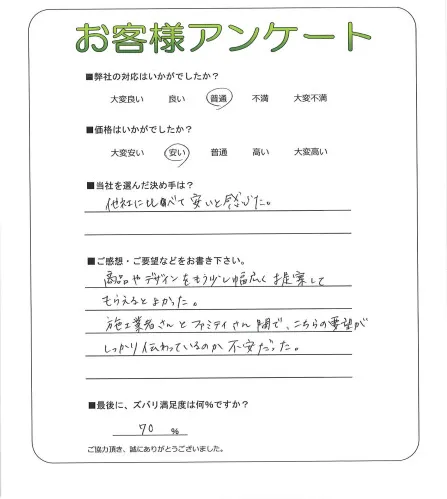 お客様アンケート
■弊社の対応はいかがでしたか？
大変良い 良い 普通 不満 大変不満
■価格はいかがでしたか？
大変安い 安い 普通 高い 大変高い
■当社を選んだ決め手は？
他社に比べて安いと感じた。
■ご感想・ご要望などをお書き下さい。
商品やデザインをもう少し幅広く提案して
もらえるとよかった。
施工業者さんとファミティさん間で、こちらの要望が
しっかり伝わっているのか不安だった。
■最後に、ズバリ満足度は何%ですか？
70 %
ご協力頂き、誠にありがとうございました。